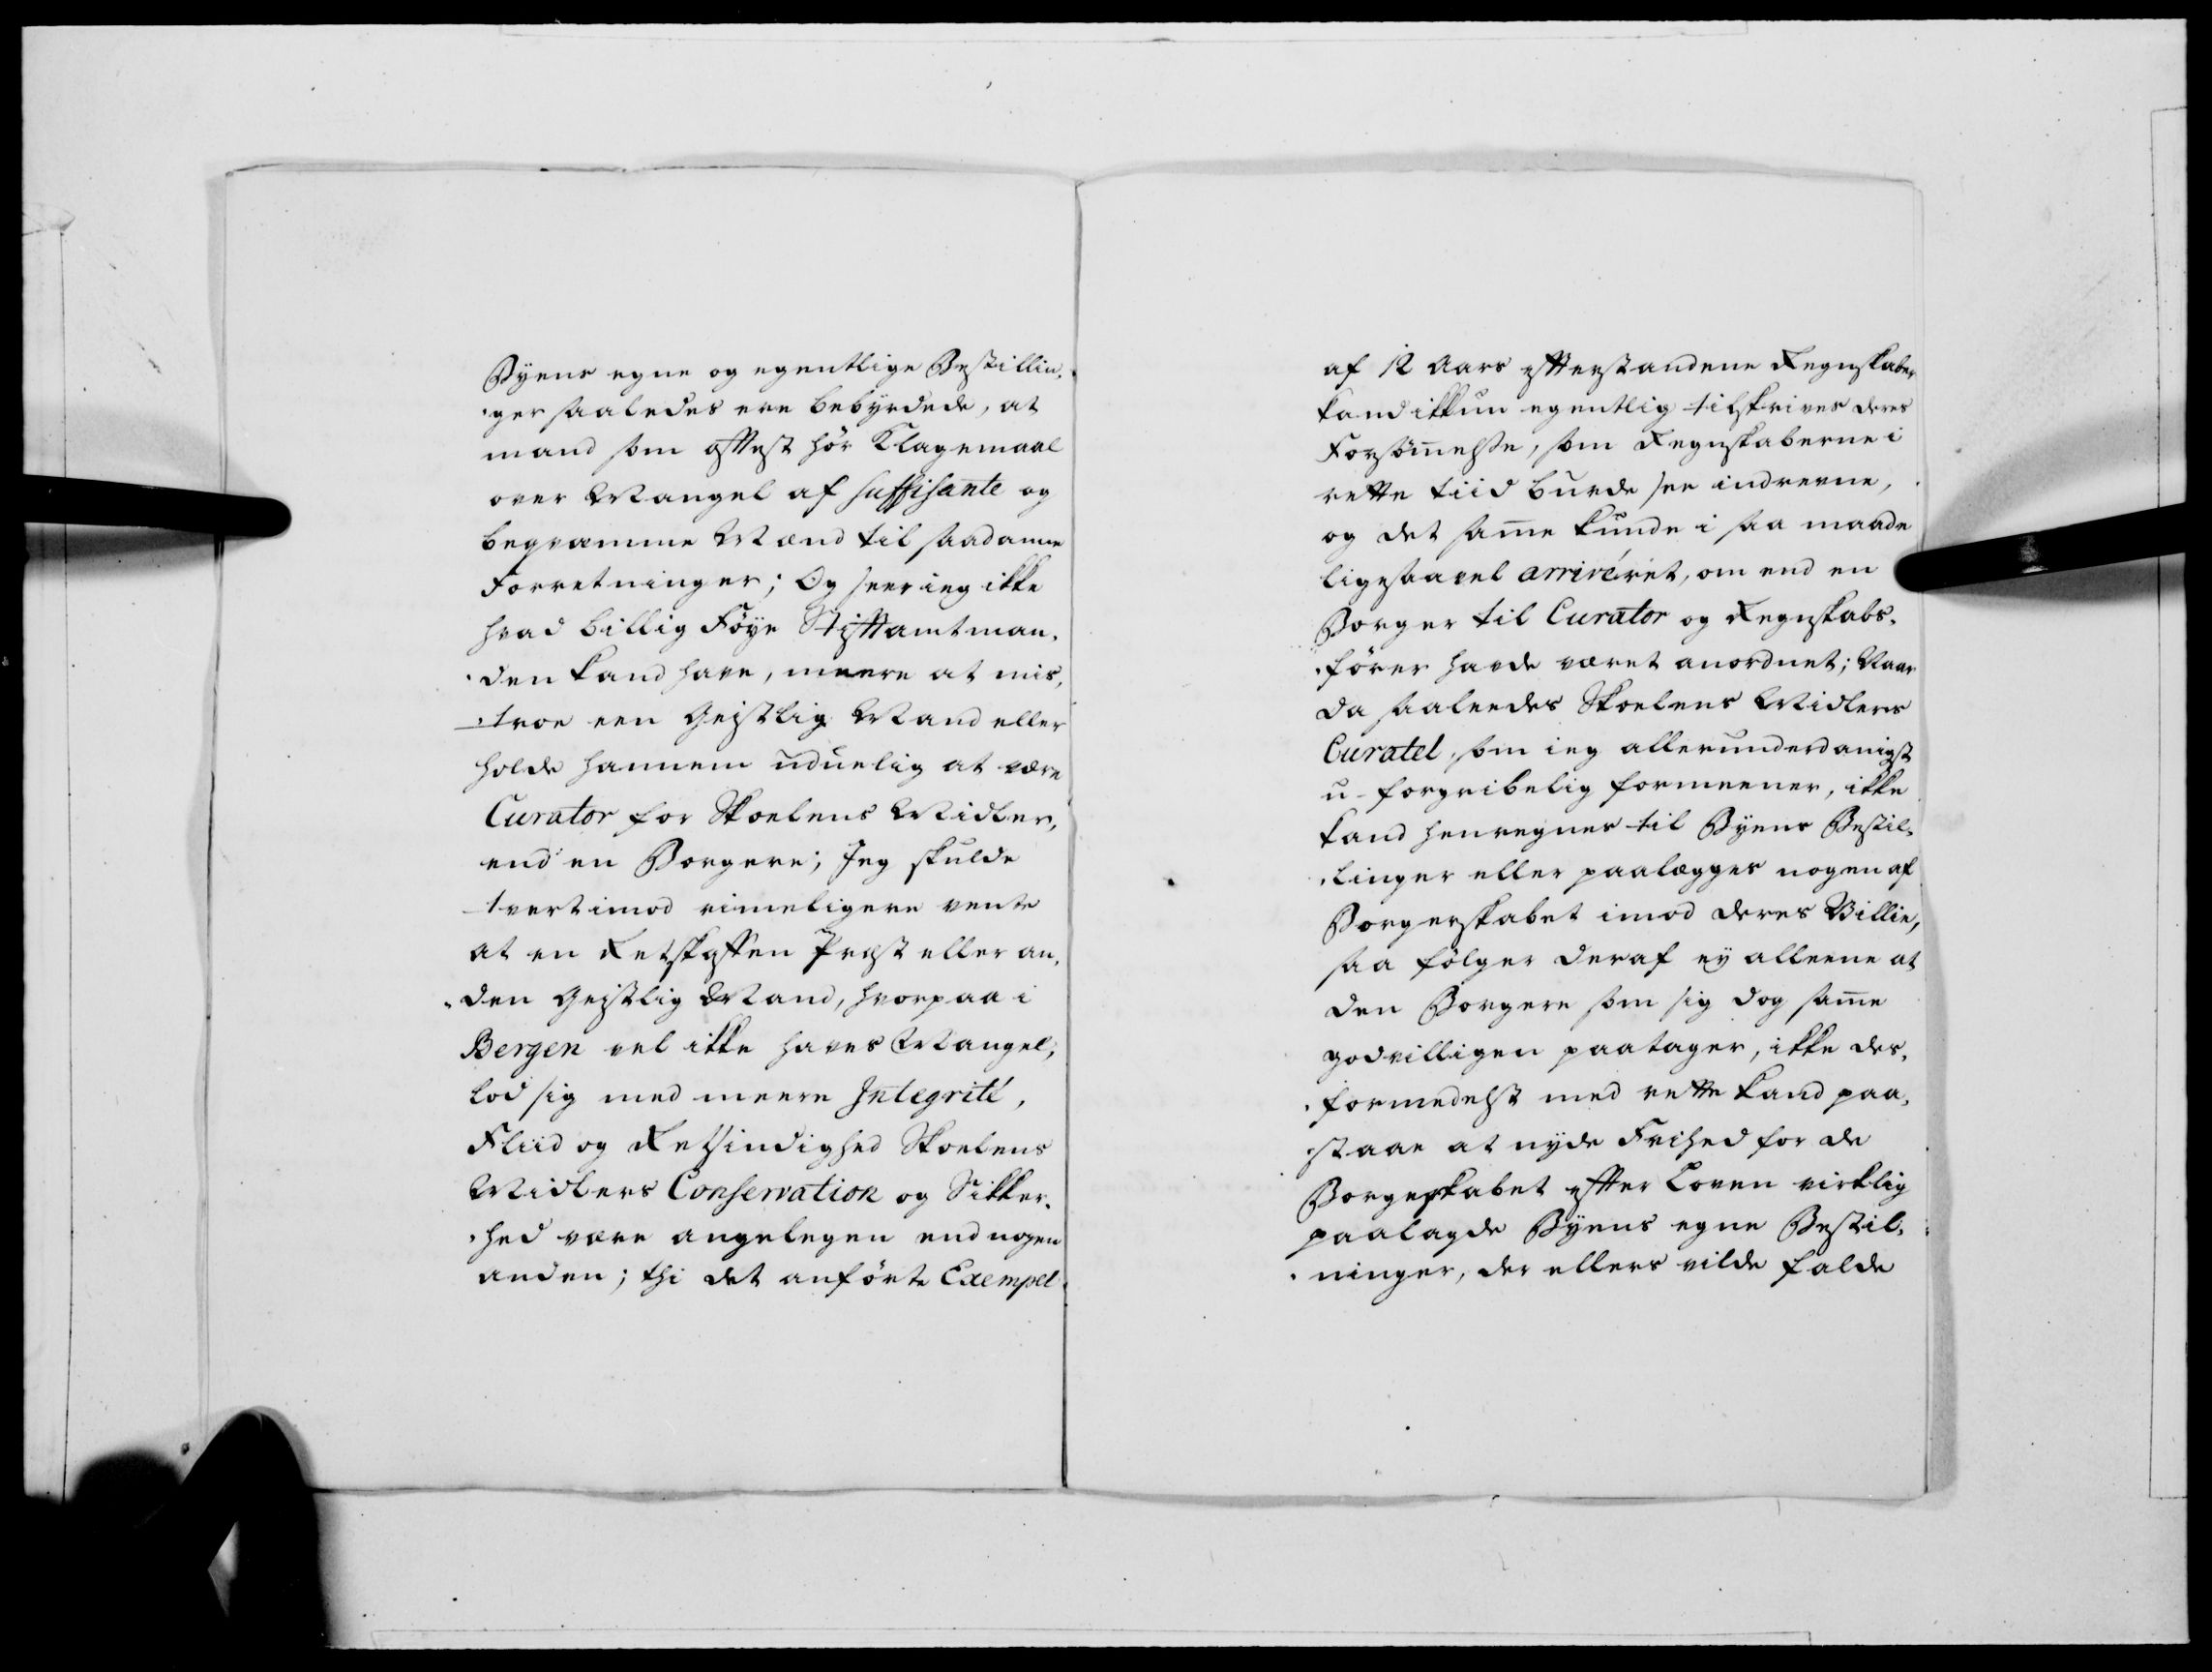 Byens egne og egentlige Bestillin-
-ger saaledes ere bebyrdede, at
mand som oftest hør Klagemaal
over Mangel af suffisante og
beqvæmme Mænd til saadanne
Forretninger; Og seer ieg ikke
hvad billig Føye Stiftamtman-
-den kand have, meere at mis-
-troe een Geistlig Mand eller
holde hannem uduelig at være
Curator for Skoelens Midler,
end en Borgere; Jeg skulde
tvertimod rimeligere vente
at en Retskaffen Præst eller an-
-den Geistlig Mand, hvorpaa i
Bergen vel ikke haves Mangel,
lod sig med meere Integrité,
Fliid og Retsindighed Skoelens
Midlers Conservation og Sikker-
-hed være angelegen end nogen
anden; thi det anførte Exempel
af 12 Aars efterstandene Regnskaber
kand ikkun egentlig tilskrives deres
Forsøm̄else, som Regnskaberne i
rette tiid burde see indrevne,
og det sam̄e kunde i saa maade
ligesaavel arriveret, om end en
Borger til Curator og Regnskabs-
-fører havde været anordnet; Naar
da saaleedes Skoelens Midlers
Curatel, som ieg allerunderdanigst
u-forgribelig formeener, ikke
kand henregnes til Byens Bestil-
-linger eller paalægges nogen af
Borgerskabet imod deres Villie,
saa følger deraf ey alleene at
den Borgere som sig dog sam̄e
godvilligen paatager, ikke des-
-formedelst med rette kand paa-
-staae at nyde Frihed for de
Borgerskabet efter Loven virklig
paalagde Byens egne Bestil-
-ninger, der ellers vilde falde